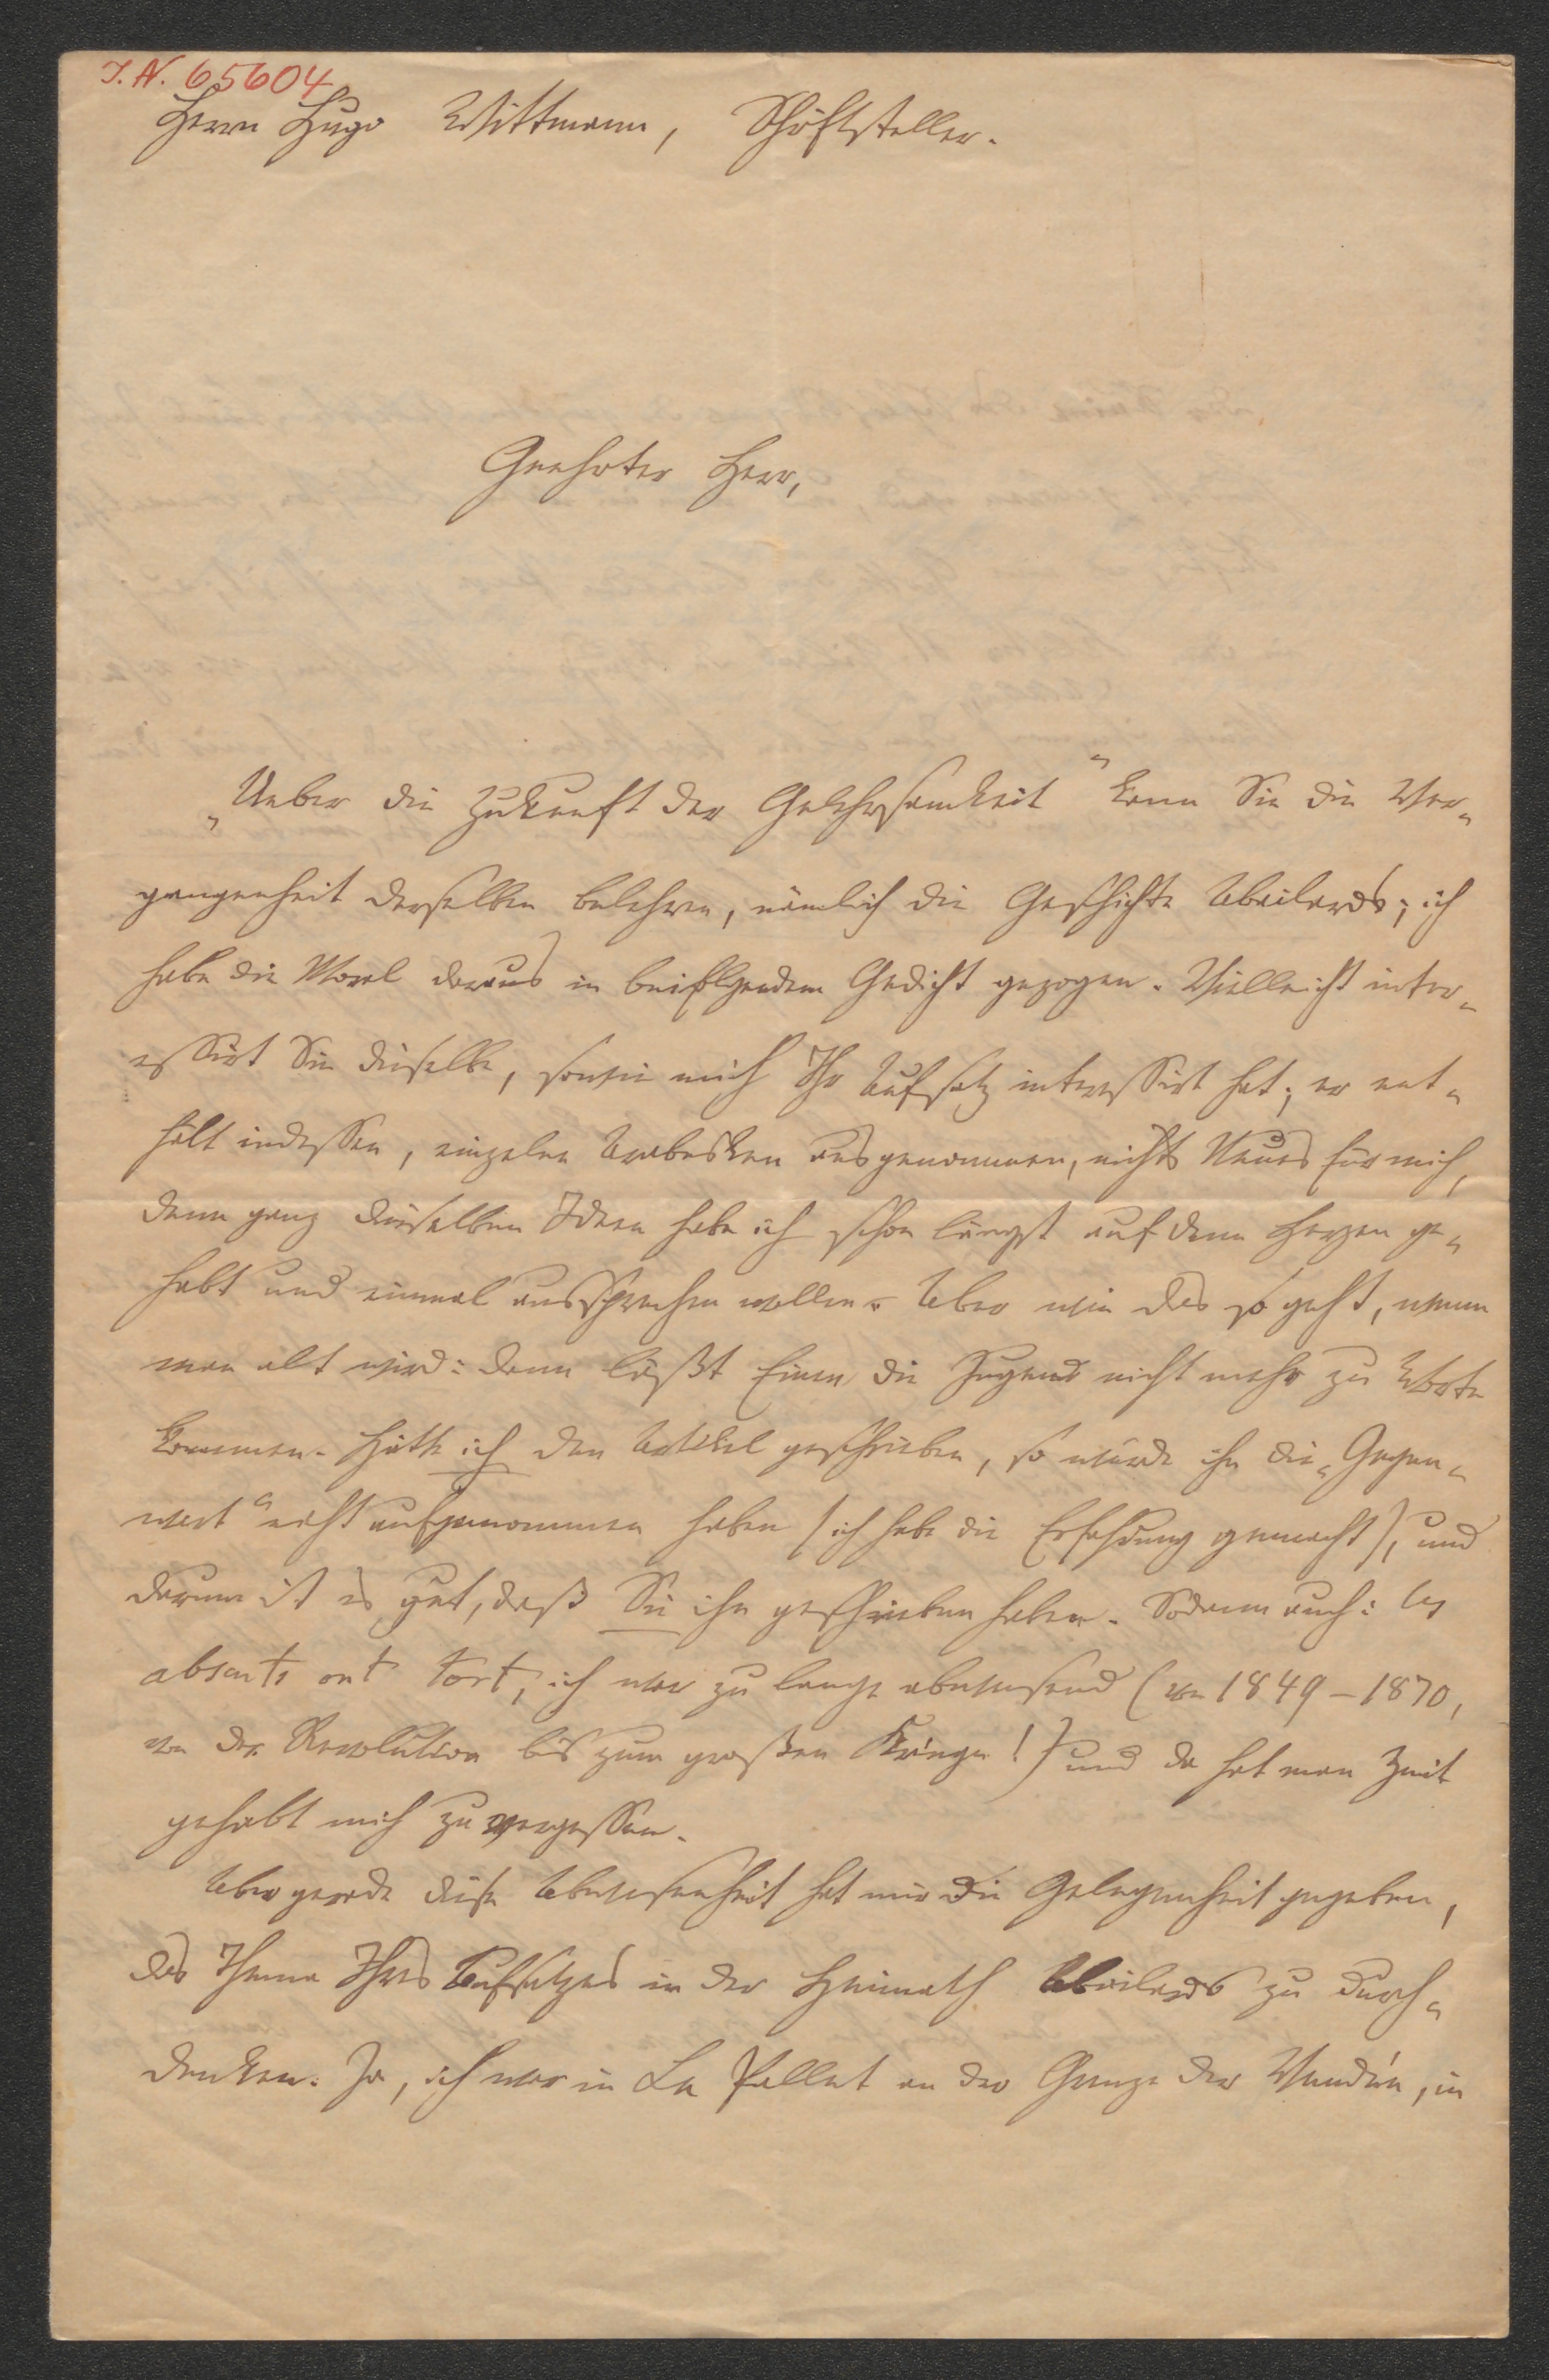 I. N. 65604
Herrn Hugo Wittmann, Schriftsteller.
Geehrter Herr,
„Ueber die Zukunft der Gelehrsamkeit“ kann Sie die Ver-
gangenheit derselben belehren, nämlich die Geschichte Abailards; ich
habe die Moral daraus in beifolgendem Gedicht gezogen. Vielleicht inter-
essirt Sie dieselbe, sowie mich Ihr Aufsatz interessirt hat; er ent-
hält indessen, einzelne Arabesken ausgenommen, nichts Neues für mich,
denn ganz dieselben Ideen habe ich schon längst auf dem Herzen ge-
habt und einmal aussprechen wollen. Aber wie das so geht, wenn
man alt wird: dann läßt Einen die Jugend nicht mehr zu Worte
kommen. Hätte ich den Artikel geschrieben, so würde ihn die „Gegen-
wart“ nicht aufgenommen haben (ich habe die Erfahrung gemacht), und
darum ist es gut, daß Sie ihn geschrieben haben. Sodann auch: les
absents ont tort; ich war zu lange abwesend (von 1849–1870,
von der Revolution bis zum großen Kriege!) und da hat man Zeit
gehabt mich zu vergessen.
Aber gerade diese Abwesenheit hat mir die Gelegenheit gegeben,
das Thema Ihres Aufsatzes in der Heimath Abailards zu durch-
denken. Ja, ich war in Le Pallet an der Grenze der Vendée, in